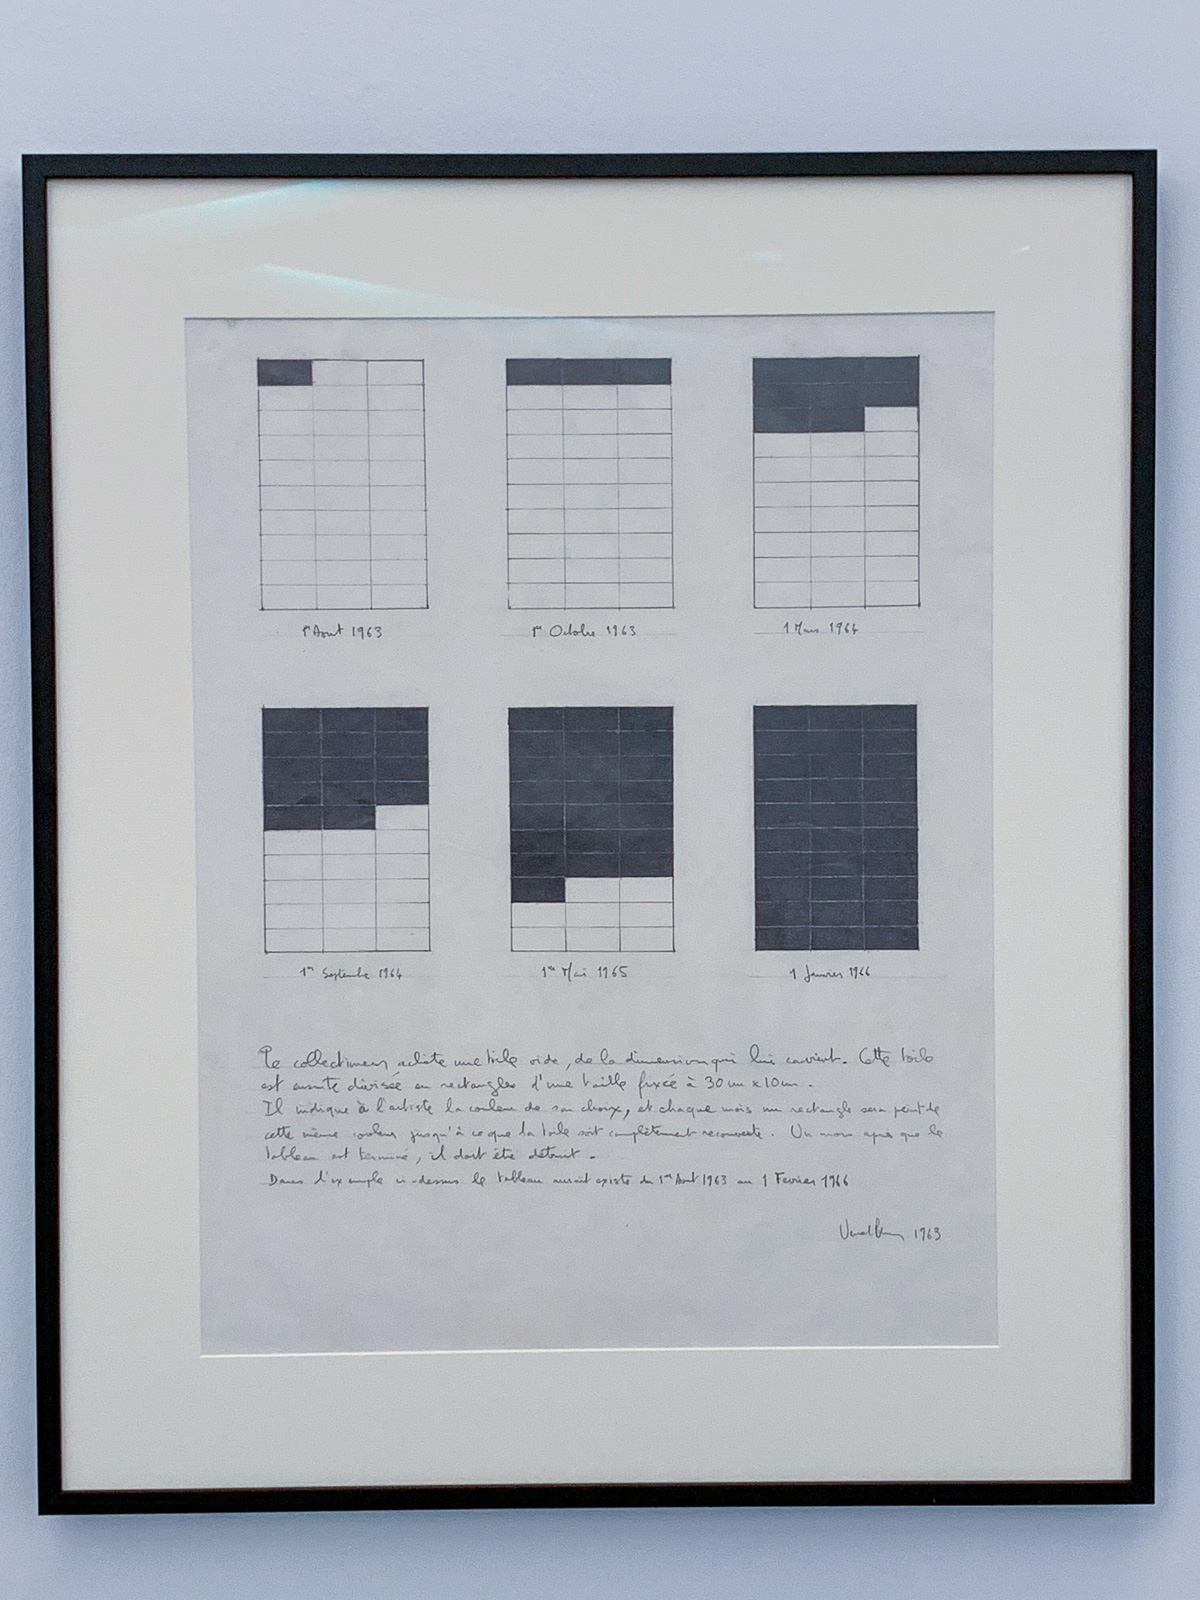 1er Aout 1963
1er Octobre 1963
1 Mars 1964
1er Septembre 1964
1er Mai 1965
1 Janvier 1966
Le collectionneur achète une toile vide, de la dimension qui lui convient. Cette toile
est ensuite divisée en rectangles d'une taille fixée à 30 cm x 10 cm.
Il indique à l'artiste la couleur de son choix, et chaque mois un rectangle sera peint de
cette même couleur jusqu'à ce que la toile soit complètement recouverte. Un mois après que le
tableau est terminé, il doit être détruit.
Dans l'exemple ci-dessus le tableau aurait existé du 1er Aout 1963 au 1 Fevrier 1966
1963